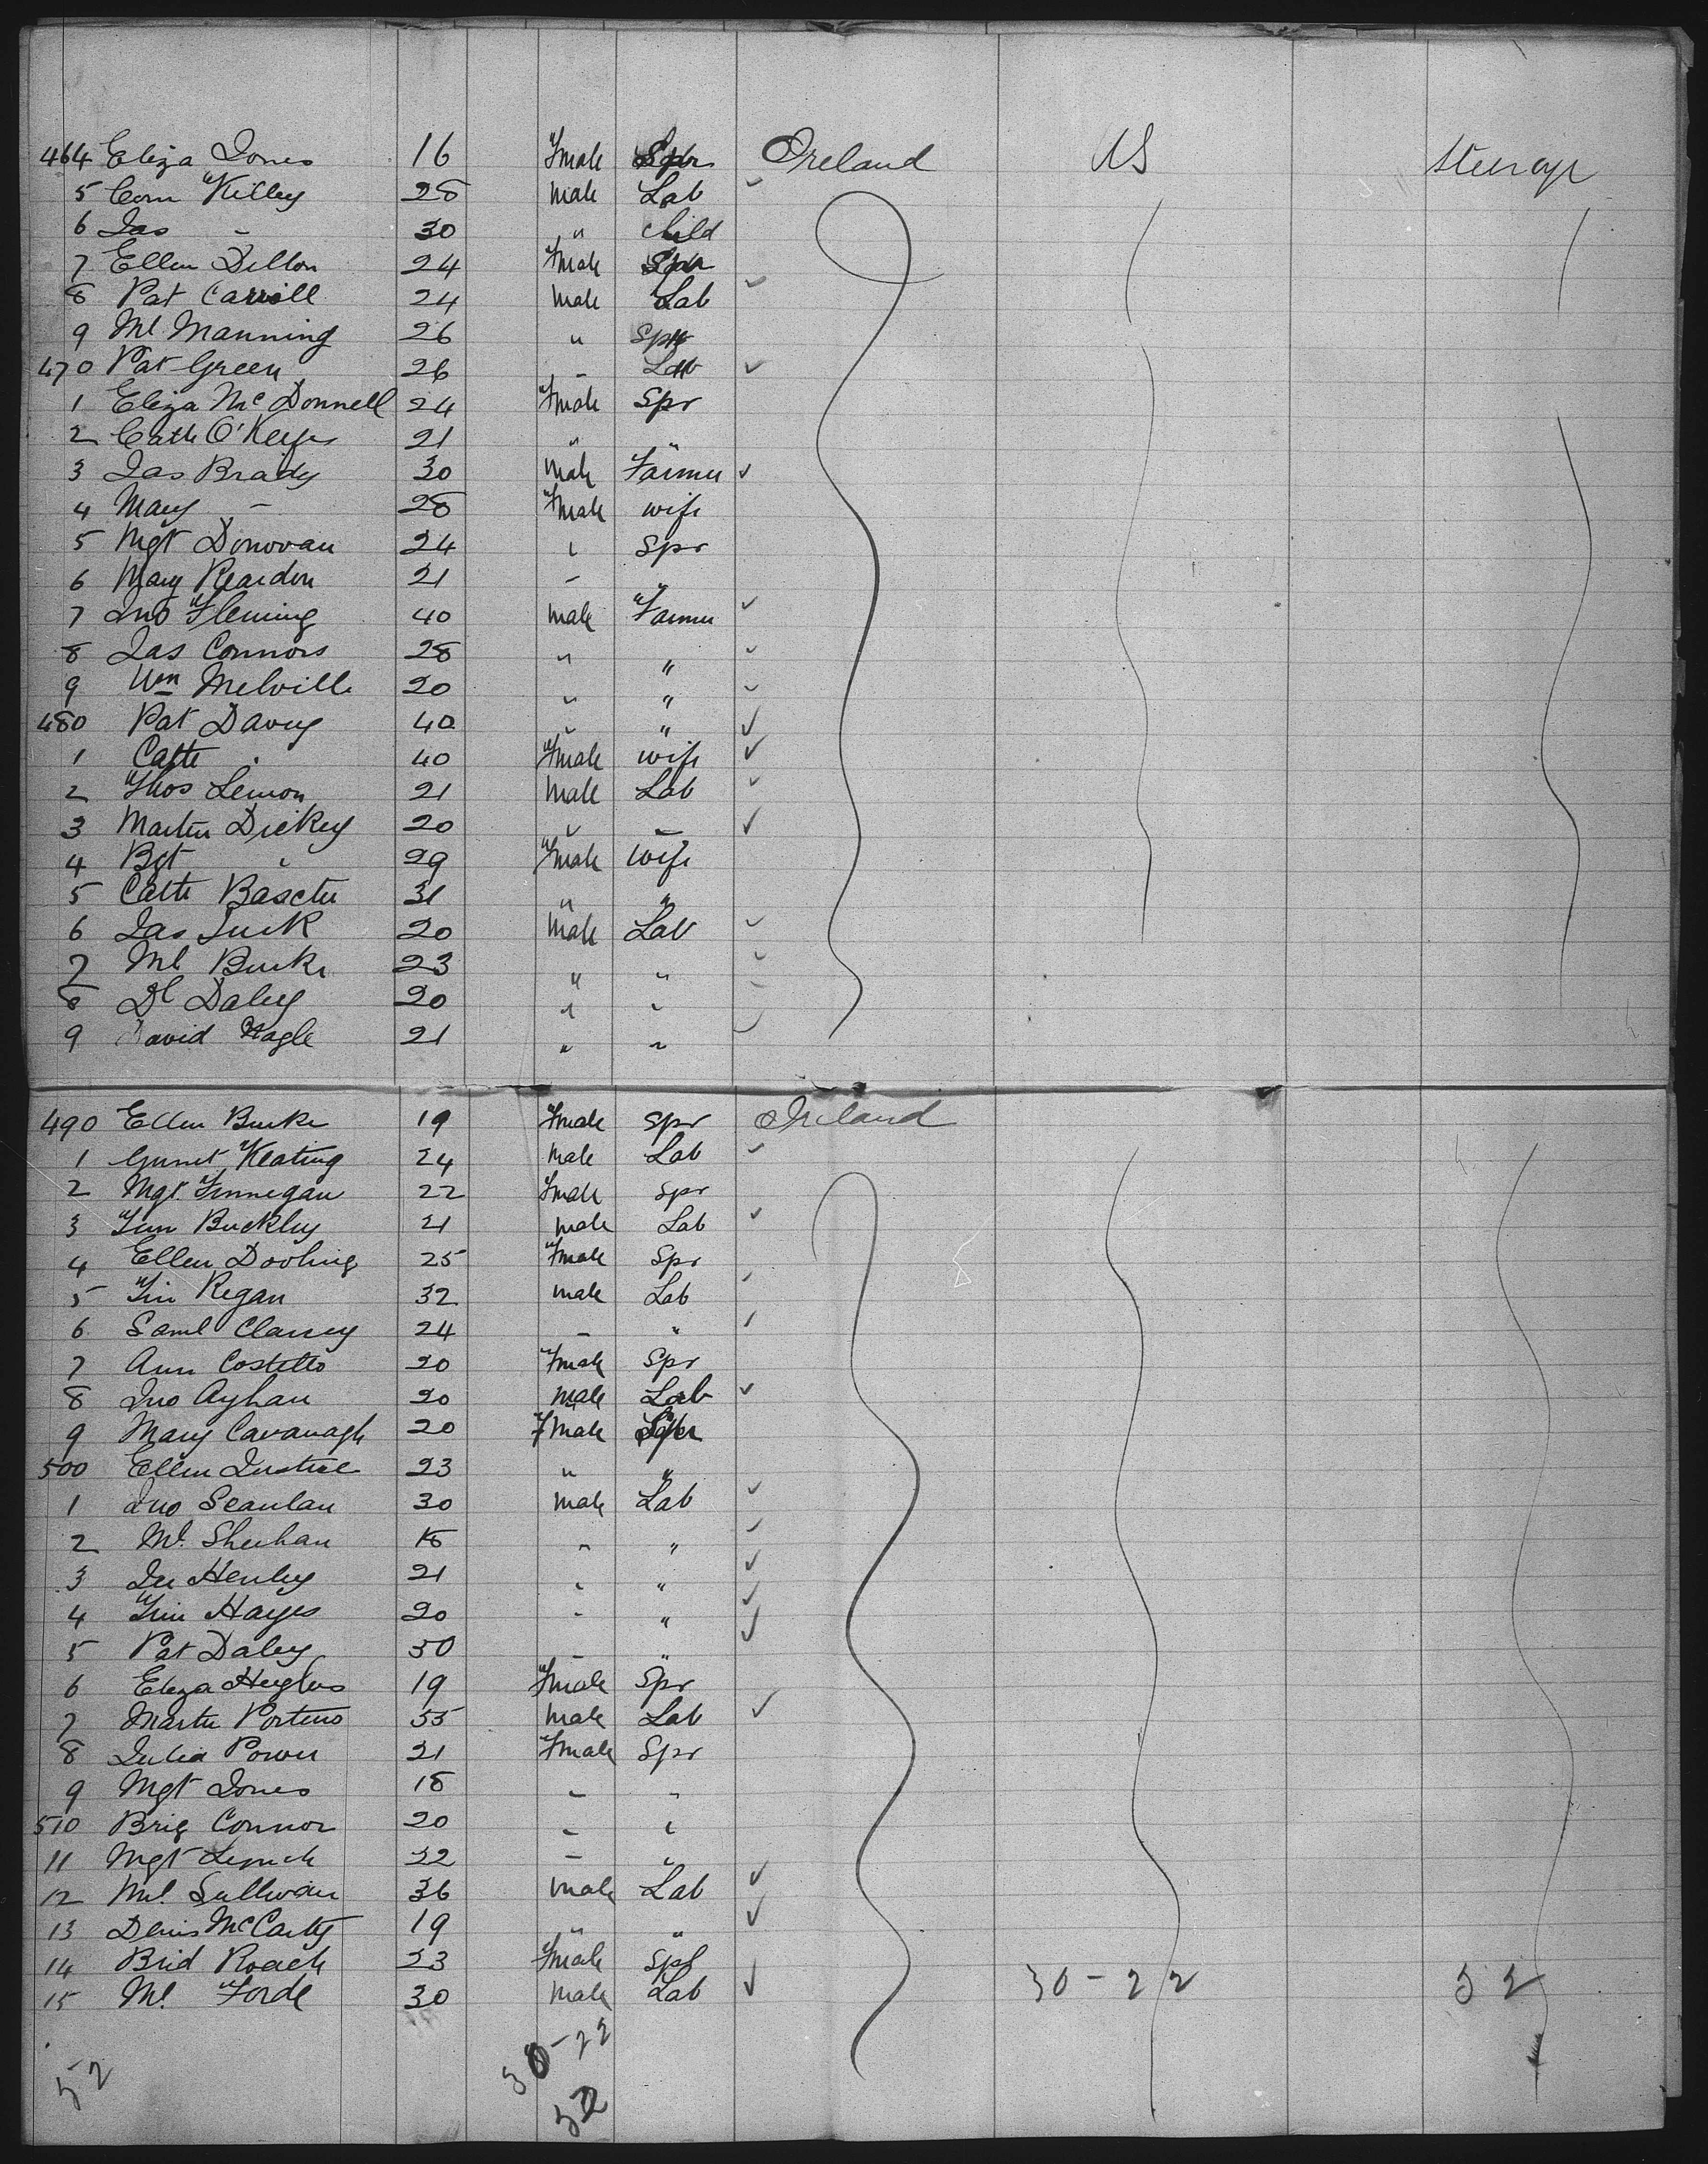 464 Eliza Jones 16 Fmale Spr Ireland US Steerage
5 Corn Killey 28 male Lab ✓
6 Jas - 30 " child
7 Ellen Dillon 24 Fmale Spr
8 Pat Carroll 24 male Lab ✓
9 Ml Manning 26 " Spr
470 Pat Green 26 - Lab ✓
1 Eliza McDonnell 24 Fmale Spr
2 Cath O'Keefe 21 " "
3 Jas Brady 30 male Farmer ✓
4 Mary - 28 Fmale wife
5 Mgt Donovan 24 " Spr
6 Mary Reardon 21 - "
7 Jno Fleming 40 male Farmer ✓
8 Jas Connors 28 " " ✓
9 Wm Melville 20 " " ✓
480 Pat Davey 40 " " ✓
1 Cath " 40 Fmale wife ✓
2 Thos Lemon 21 male Lab ✓
3 Martin Dickey 20 " - ✓
4 Bgt " 29 Fmale wife
5 Cath 31 " "
6 Jas 20 male Lab ✓
7 Ml Burke 23 " " ✓
8 Dl Daley 20 " " ✓
9 David Nagle 21 " " ✓
490 Ellen Burke 19 Fmale Spr Ireland
1 Keating 24 male Lab ✓
2 Mgt Finnegan 22 Fmale Spr
3 Tim Buckley 21 male Lab ✓
4 Ellen Dooling 25 Fmale Spr
5 Tim Regan 32 male Lab ✓
6 Saml Clancy 24 - " ✓
7 Ann Costello 20 Fmale Spr
8 Jno Ayhan 20 male Lab ✓
9 Mary Cavanagh 20 Fmale Spr
500 Ellen Justice 23 " "
1 Jno Scanlan 30 male Lab ✓
2 Ml Sheehan 18 " " ✓
3 Henley 21 " " ✓
4 Tim Hayes 20 - " ✓
5 Pat Daley 30 - " ✓
6 Eliza Hughes 19 Fmale Spr
7 Martin Porteus 35 male Lab ✓
8 Julia Power 21 Fmale Spr
9 Mgt Jones 18 - "
510 Brig Connor 20 - "
11 Mgt Lynch 22 - "
12 Ml Sullivan 36 male Lab ✓
13 Denis McCarty 19 " " ✓
14 Brid Roach 23 Fmale Spr
15 Ml Forde 30 male Lab ✓ 30-22 52
30-22
52 52